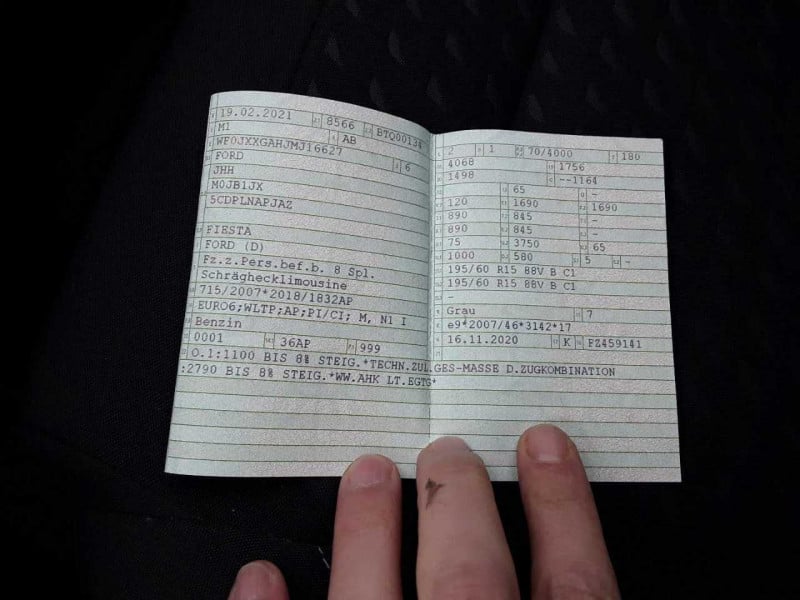 19.02.2021 8566 BTQ00134
M1 AB
WF0JXXGAHJMJ16627 6
FORD
JHH
M0JB1JX
5CDPLNAPJAZ
FIESTA
FORD (D)
Fz.z.Pers.bef.b. 8 Spl.
Schräghecklimousine
715/2007*2018/1832AP
EURO6;WLTP;AP;PI/CI; M, N1 I
Benzin
0001 36AP 999
2 1 70/4000 180
4068 1756
1498 --1164
65 -
120 1690 1690
890 845 -
890 845 -
75 3750 65
1000 580 5 -
195/60 R15 88V B C1
195/60 R15 88V B C1
-
Grau 7
e9*2007/46*3142*17
16.11.2020 K FZ459141
O.1:1100 BIS 8% STEIG.*TECHN.ZUL.GES-MASSE D.ZUGKOMBINATION
:2790 BIS 8% STEIG.*WW.AHK LT.EGTG*